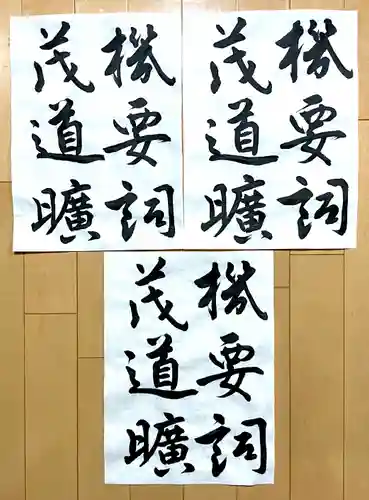 機要詞
茂道曠
機要詞
茂道曠
機要詞
茂道曠